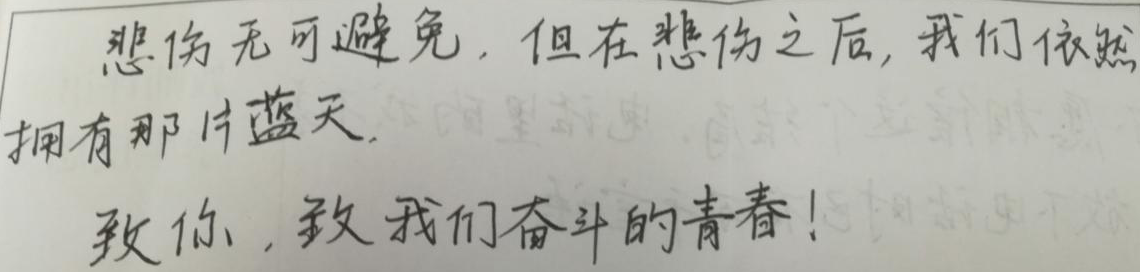 悲伤无可避免，但在悲伤之后，我们依然
拥有那片蓝天.
致你，致我们奋斗的青春！